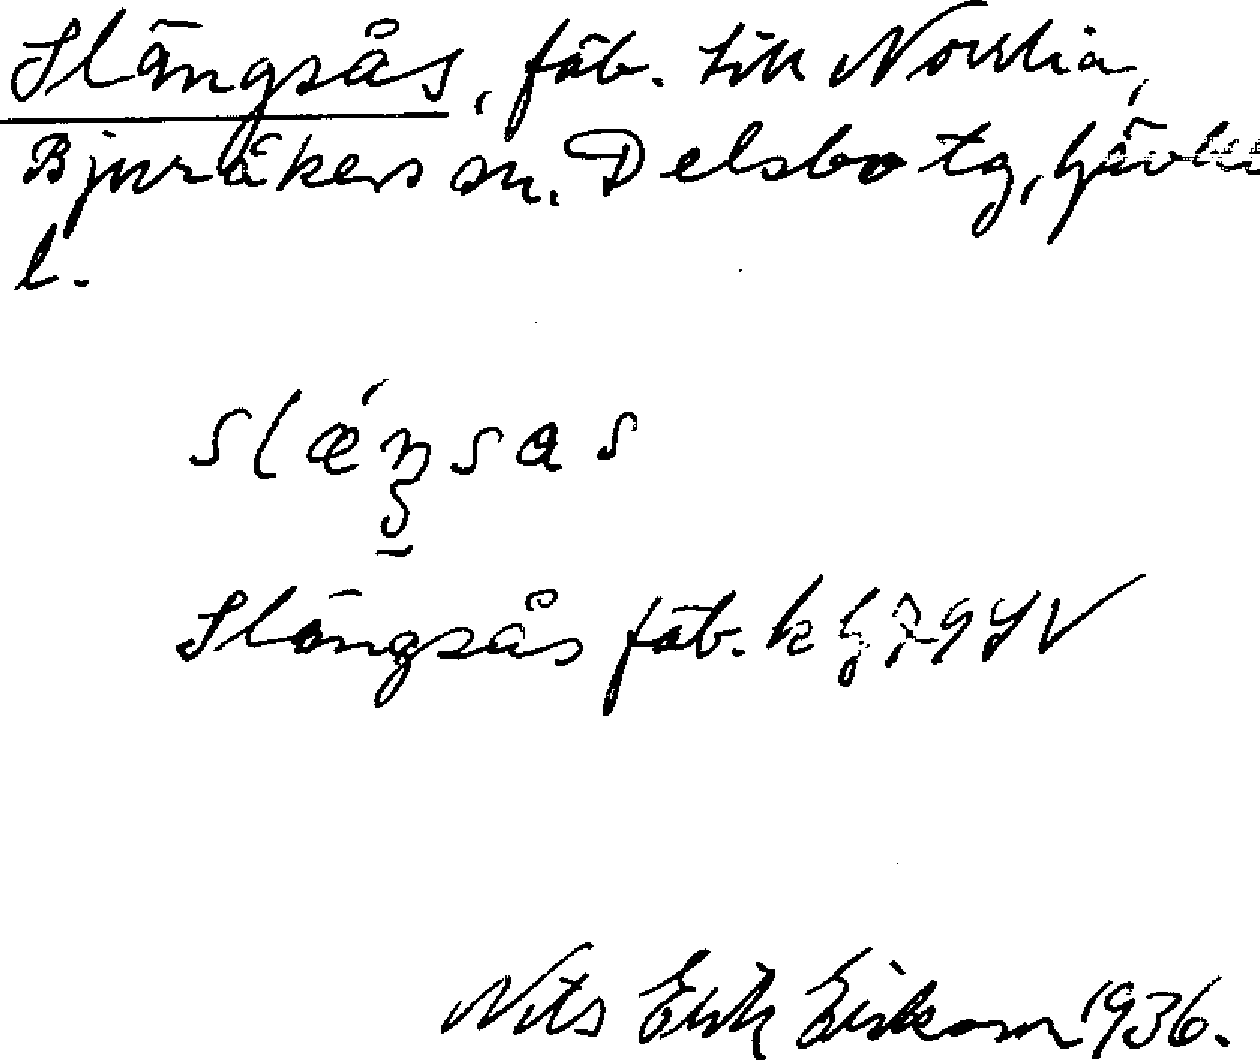 Slängsås, fäb. till Norrlia,
Bjuråkers sn. Delsbo tg, Gävle
l.
slǽŋsas
Slängsås fäb. k
Nils Erik Eriksson 1936.